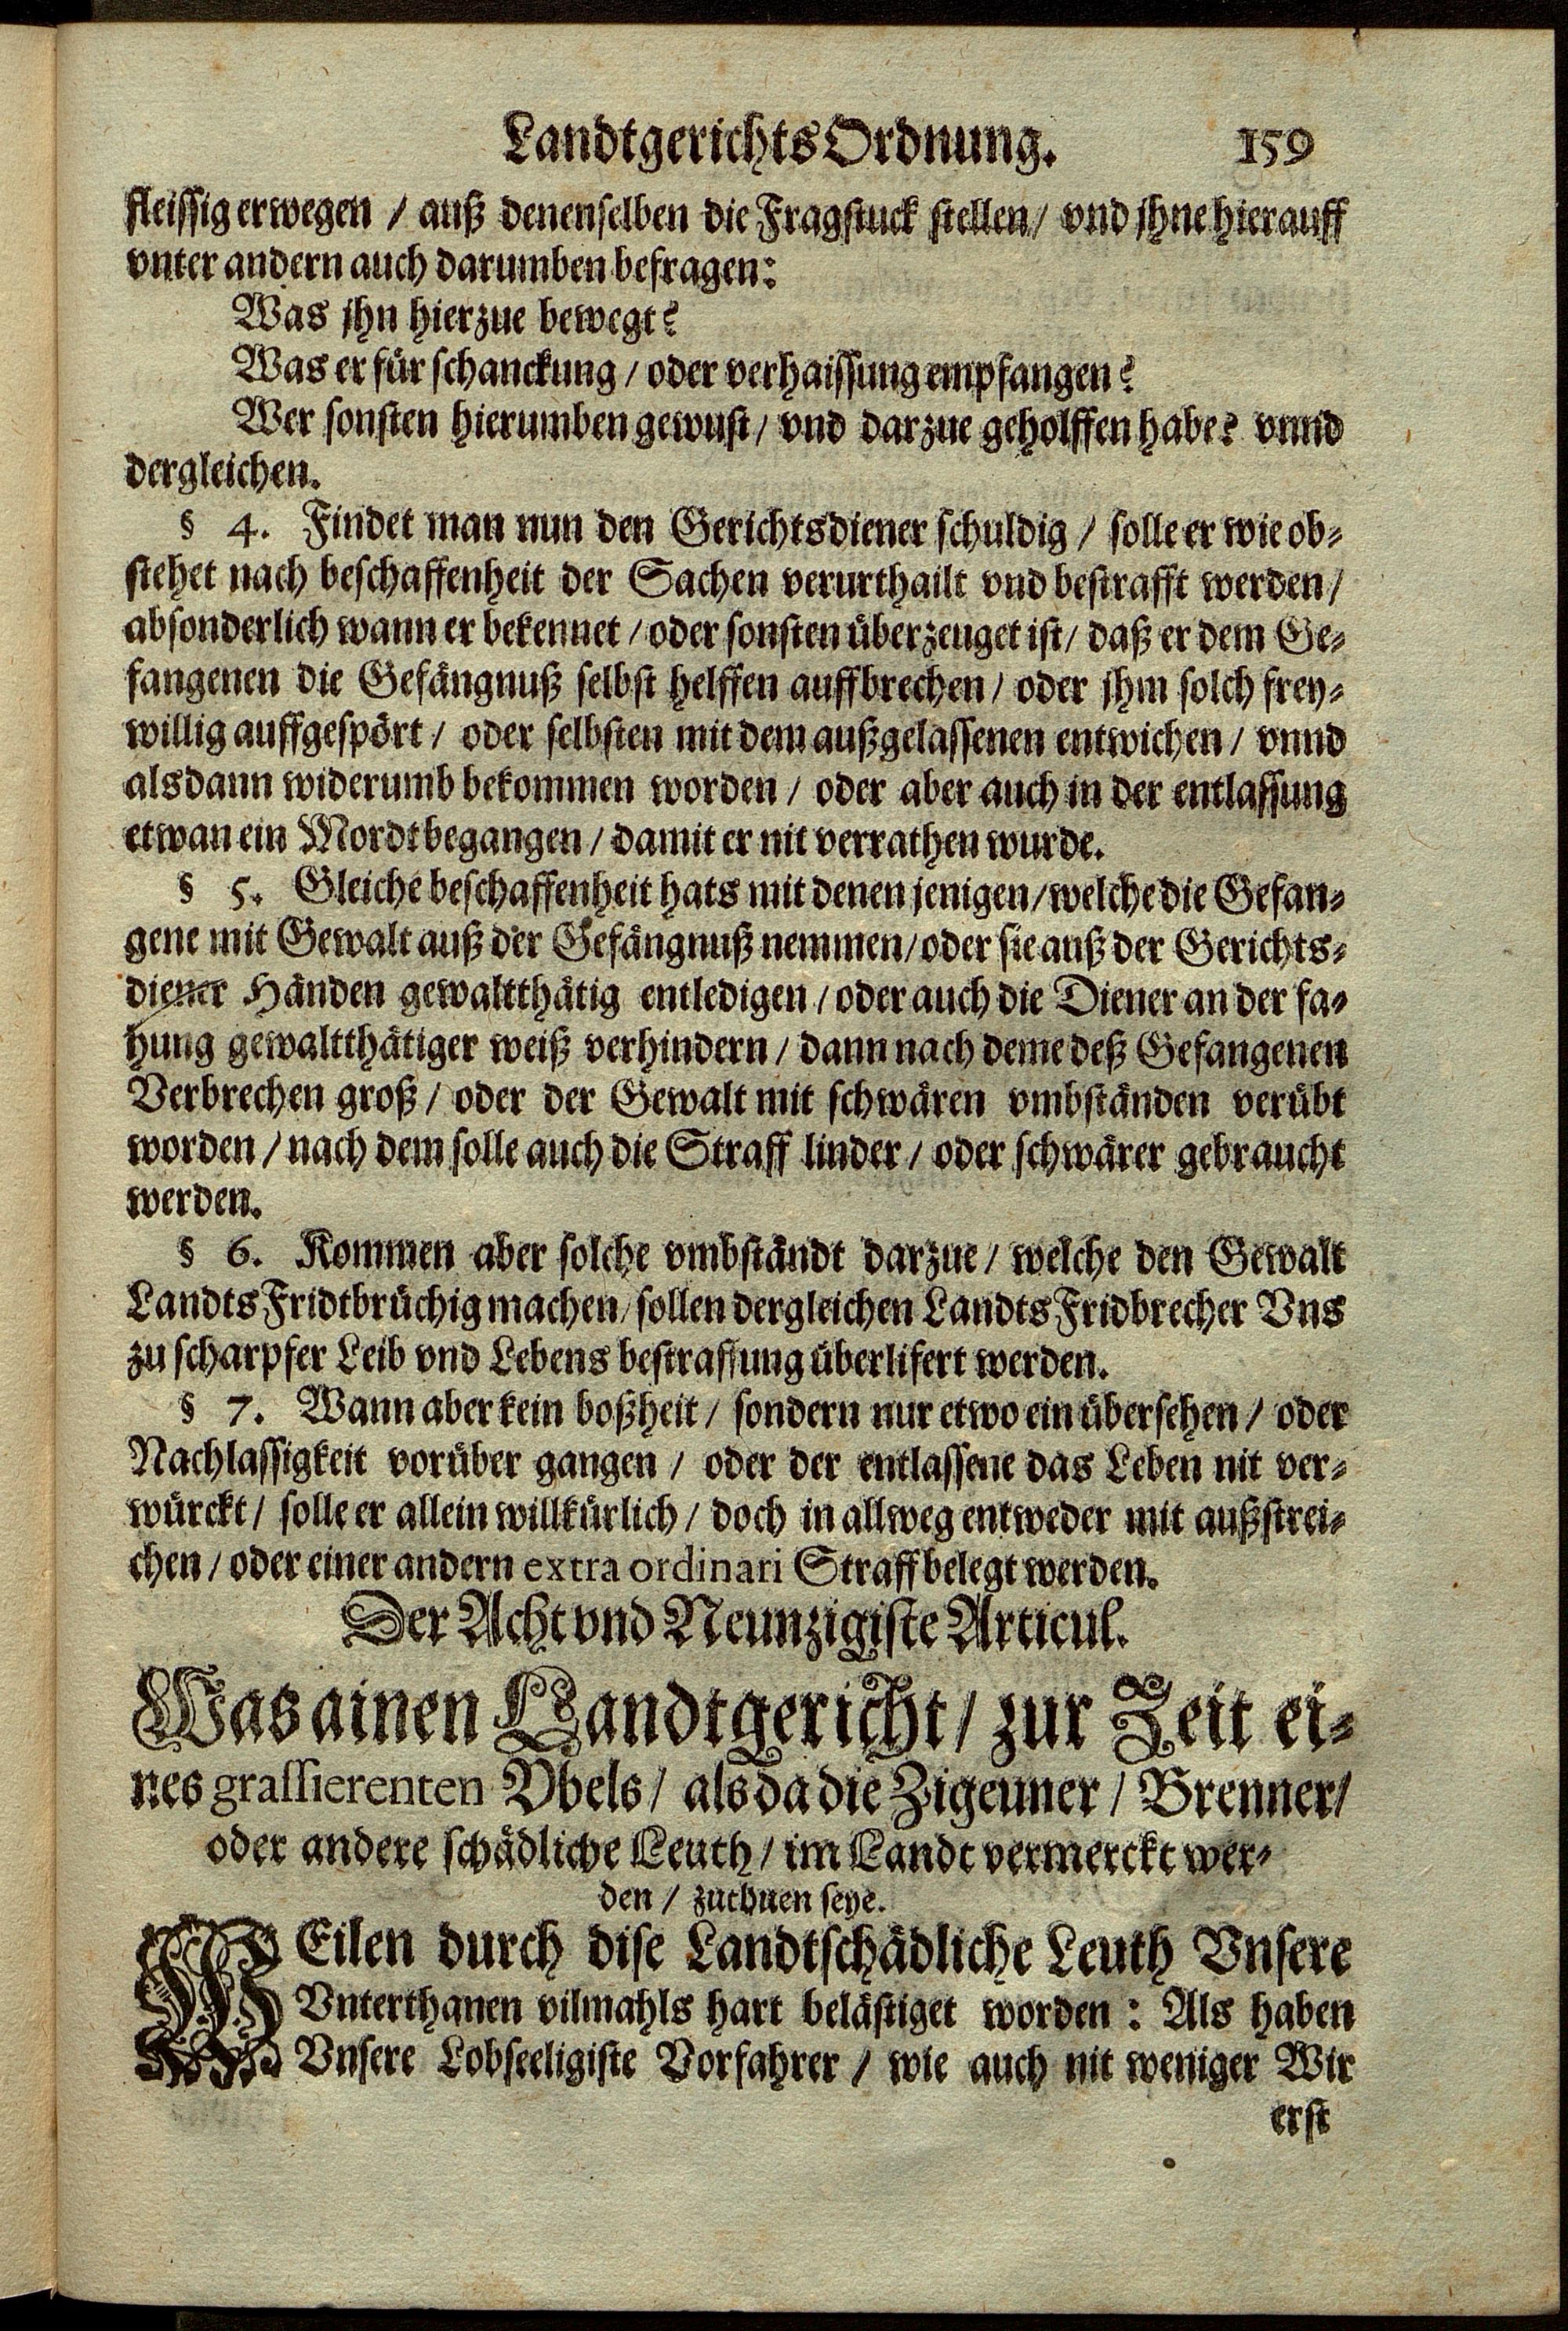 LandtgerichtsOrdnung. 159
fleissig erwegen / auß denenselben die Fragstuck stellen / vnd jhne hierauff
vnter andern auch darumben befragen:
Was jhn hierzue bewegt?
Was er für schanckung / oder verhaissung empfangen?
Wer sonsten hierumben gewust / vnd darzue geholffen habe? vnnd
dergleichen.
§ 4. Findet man nun den Gerichtsdiener schuldig / solle er wie ob=
stehet nach beschaffenheit der Sachen verurthailt vnd bestrafft werden /
absonderlich wann er bekennet / oder sonsten überzeuget ist / daß er dem Ge=
fangenen die Gefängnuß selbst helffen auffbrechen / oder jhm solch frey=
willig auffgespört / oder selbsten mit dem außgelassenen entwichen / vnnd
alsdann widerumb bekommen worden / oder aber auch in der entlassung
etwan ein Mordt begangen / damit er nit verrathen wurde.
§ 5. Gleiche beschaffenheit hats mit denen jenigen / welche die Gefan=
gene mit Gewalt auß der Gefängnuß nemmen / oder sie auß der Gerichts=
diener Händen gewaltthätig entledigen / oder auch die Diener an der fa=
hung gewaltthätiger weiß verhindern / dann nach deme deß Gefangenen
Verbrechen groß / oder der Gewalt mit schwären vmbständen verübt
worden / nach dem solle auch die Straff linder / oder schwärer gebraucht
werden.
§ 6. Kommen aber solche vmbständt darzue / welche den Gewalt
LandtsFridtbrüchig machen / sollen dergleichen LandtsFridbrecher Vns
zu scharpfer Leib vnd Lebens bestraffung überlifert werden.
§ 7. Wann aber kein boßheit / sondern nur etwo ein übersehen / oder
Nachlassigkeit vorüber gangen / oder der entlassene das Leben nit ver=
würckt / solle er allein willkürlich / doch in allweg entweder mit außstrei=
chen / oder einer andern extra ordinari Straff belegt werden.
Der Acht vnd Neunzigiste Articul.
Was ainen Landtgericht / zur Zeit ei=
nes grassierenten Vbels / als da die Zigeuner / Brenner /
oder andere schädliche Leuth / im Landt vermerckt wer=
den / zuthuen seye.
WEilen durch dise Landtschädliche Leuth Vnsere
Vnterthanen vilmahls hart belästiget worden: Als haben
Vnsere Lobseeligiste Vorfahrer / wie auch nit weniger Wir
erst